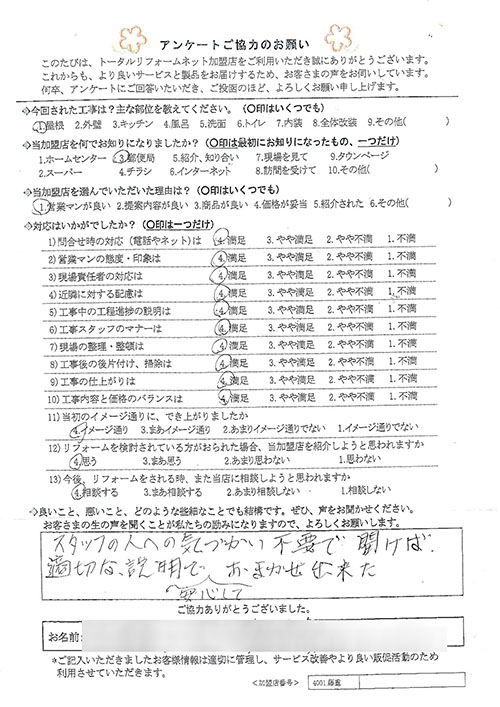 アンケートご協力のお願い
このたびは、トータルリフォームネット加盟店をご利用いただき誠にありがとうございます。
これからも、より良いサービスと製品をお届けするため、お客さまの声をお伺いしています。
何卒、アンケートにご回答いただき、ご投函のほど、よろしくお願い申し上げます。
◇今回された工事は?主な部位を教えてください。(〇印はいくつでも)
1.屋根 2.外壁 3.キッチン 4.風呂 5.洗面 6.トイレ 7.内装 8.全体改装 9.その他( )
◇当加盟店を何でお知りになりましたか?(〇印は最初にお知りになったもの、一つだけ)
1.ホームセンター 3.郵便局 5.紹介、知り合い 7.現場を見て 9.タウンページ
2.スーパー 4.チラシ 6.インターネット 8.訪問を受けて 10.その他( )
◇当加盟店を選んでいただいた理由は?(〇印はいくつでも)
1.営業マンが良い 2.提案内容が良い 3.商品が良い 4.価格が妥当 5.紹介された 6.その他( )
◇対応はいかがでしたか?(〇印は一つだけ)
1)問合せ時の対応(電話やネット)は 4.満足 3.やや満足 2.やや不満 1.不満
2)営業マンの態度・印象は 4.満足 3.やや満足 2.やや不満 1.不満
3)現場責任者の対応は 4.満足 3.やや満足 2.やや不満 1.不満
4)近隣に対する配慮は 4.満足 3.やや満足 2.やや不満 1.不満
5)工事中の工程進捗の説明は 4.満足 3.やや満足 2.やや不満 1.不満
6)工事スタッフのマナーは 4.満足 3.やや満足 2.やや不満 1.不満
7)現場の整理・整頓は 4.満足 3.やや満足 2.やや不満 1.不満
8)工事後の後片付け、掃除は 4.満足 3.やや満足 2.やや不満 1.不満
9)工事の仕上がりは 4.満足 3.やや満足 2.やや不満 1.不満
10)工事内容と価格のバランスは 4.満足 3.やや満足 2.やや不満 1.不満
11)当初のイメージ通りに、でき上がりましたか
4.イメージ通り 3.まあイメージ通り 2.あまりイメージ通りでない 1.イメージ通りでない
12)リフォームを検討されている方がおられた場合、当加盟店を紹介しようと思われますか
4.思う 3.まあ思う 2.あまり思わない 1.思わない
13)今後、リフォームをされる時、また当店に相談しようと思われますか
4.相談する 3.まあ相談する 2.あまり相談しない 1.相談しない
◇良いこと、悪いこと、どのような些細なことでも結構です。ぜひ、声をお聞かせください。
お客さまの生の声を聞くことが私たちの励みになりますので、よろしくお願いします。
スタッフの人への気づかい不要で聞けば
適切な説明で おまかせ出来た
安心して
ご協力ありがとうございました。
お名前:
*ご記入いただきましたお客様情報は適切に管理し、サービス改善やより良い販促活動のため
利用させていただきます。
<加盟店番号> 4001.藤重